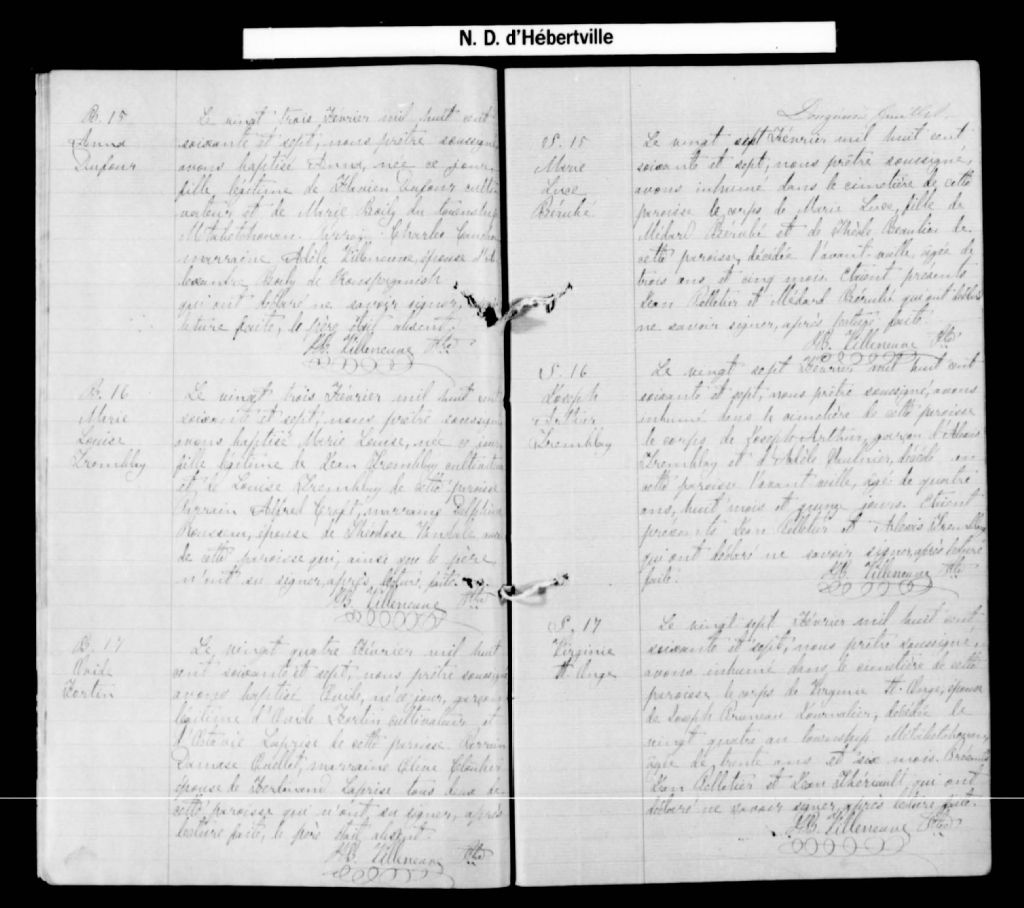 N. D. d'Hébertville
B. 15
Anna
Dufour
Le vingt trois Février mil huit cent
soixante et sept, nous prêtre soussigné
avons baptisé Anna, née ce jour,
fille légitime de Flavien Dufour culti
vateur et de Marie Baily du township
Metabetchouan. Parrain Charles
marraine Adèle Villeneuve, épouse d'Al
exandre Baily de
qui ont déclaré ne savoir signer,
lecture faite, le père était absent.
HB. Villeneuve Ptre
B. 16
Marie
Louise
Tremblay
Le vingt trois Février mil huit cent
soixante et sept, nous prêtre soussigné
avons baptisé Marie Louise, née ce jour
fille légitime de Jean Tremblay cultivateur
et de Louise Tremblay de cette paroisse
Parrain Alfred marraine Delphine
Rousseau, épouse de
de cette paroisse qui, ainsi que le père
n'ont su signer, après lecture faite.
HB. Villeneuve Ptre
B. 17
Ovide
Fortin
Le vingt quatre Février mil huit
cent soixante et sept, nous prêtre soussigné
avons baptisé Ovide, né ce jour, garçon
légitime d'Ovide Fortin cultivateur et
d'Octavie Laprise de cette paroisse. Parrain
Damase Ouellet, marraine Cloutier
épouse de Ferdinand Laprise tous deux de
cette paroisse qui n'ont su signer, après
lecture faite, le père était absent.
HB. Villeneuve Ptre
S. 15
Marie
Luce
Bérubé
Le vingt sept Février mil huit cent
soixante et sept, nous prêtre soussigné,
avons inhumé dans le cimetière de cette
paroisse le corps de Marie Luce, fille de
Médard Bérubé et de Beaulieu de
cette paroisse, décédée l'avant veille, agée de
trois ans et cinq mois. Etaient présents
Jean Pelletier et Médard Bérubé qui ont déclaré
ne savoir signer, après lecture faite.
HB. Villeneuve Ptre
S. 16
Joseph
Arthur
Tremblay
Le vingt sept Février mil huit cent
soixante et sept, nous prêtre soussigné, avons
inhumé dans le cimetière de cette paroisse
le corps de Joseph Arthur, garçon d'Alexis
Tremblay et d'Adèle décédé en
cette paroisse l'avant veille, agé de quatre
ans, huit mois et quinze jours. Etaient
présents Jean Pelletier et Alexis Tremblay
qui ont déclaré ne savoir signer, après lecture
faite.
HB. Villeneuve Ptre
S. 17
Virginie
St. Ange
Le vingt sept Février mil huit cent
soixante et sept, nous prêtre soussigné,
avons inhumé dans le cimetière de cette
paroisse le corps de Virginie St. Ange, épouse
de Joseph Bruneau Journalier, décédée le
vingt quatre au township Metabetchouan,
agée de trente ans et six mois. Présents
Jean Pelletier et Jean Thériault qui ont
déclaré ne savoir signer, après lecture faite.
HB. Villeneuve Ptre